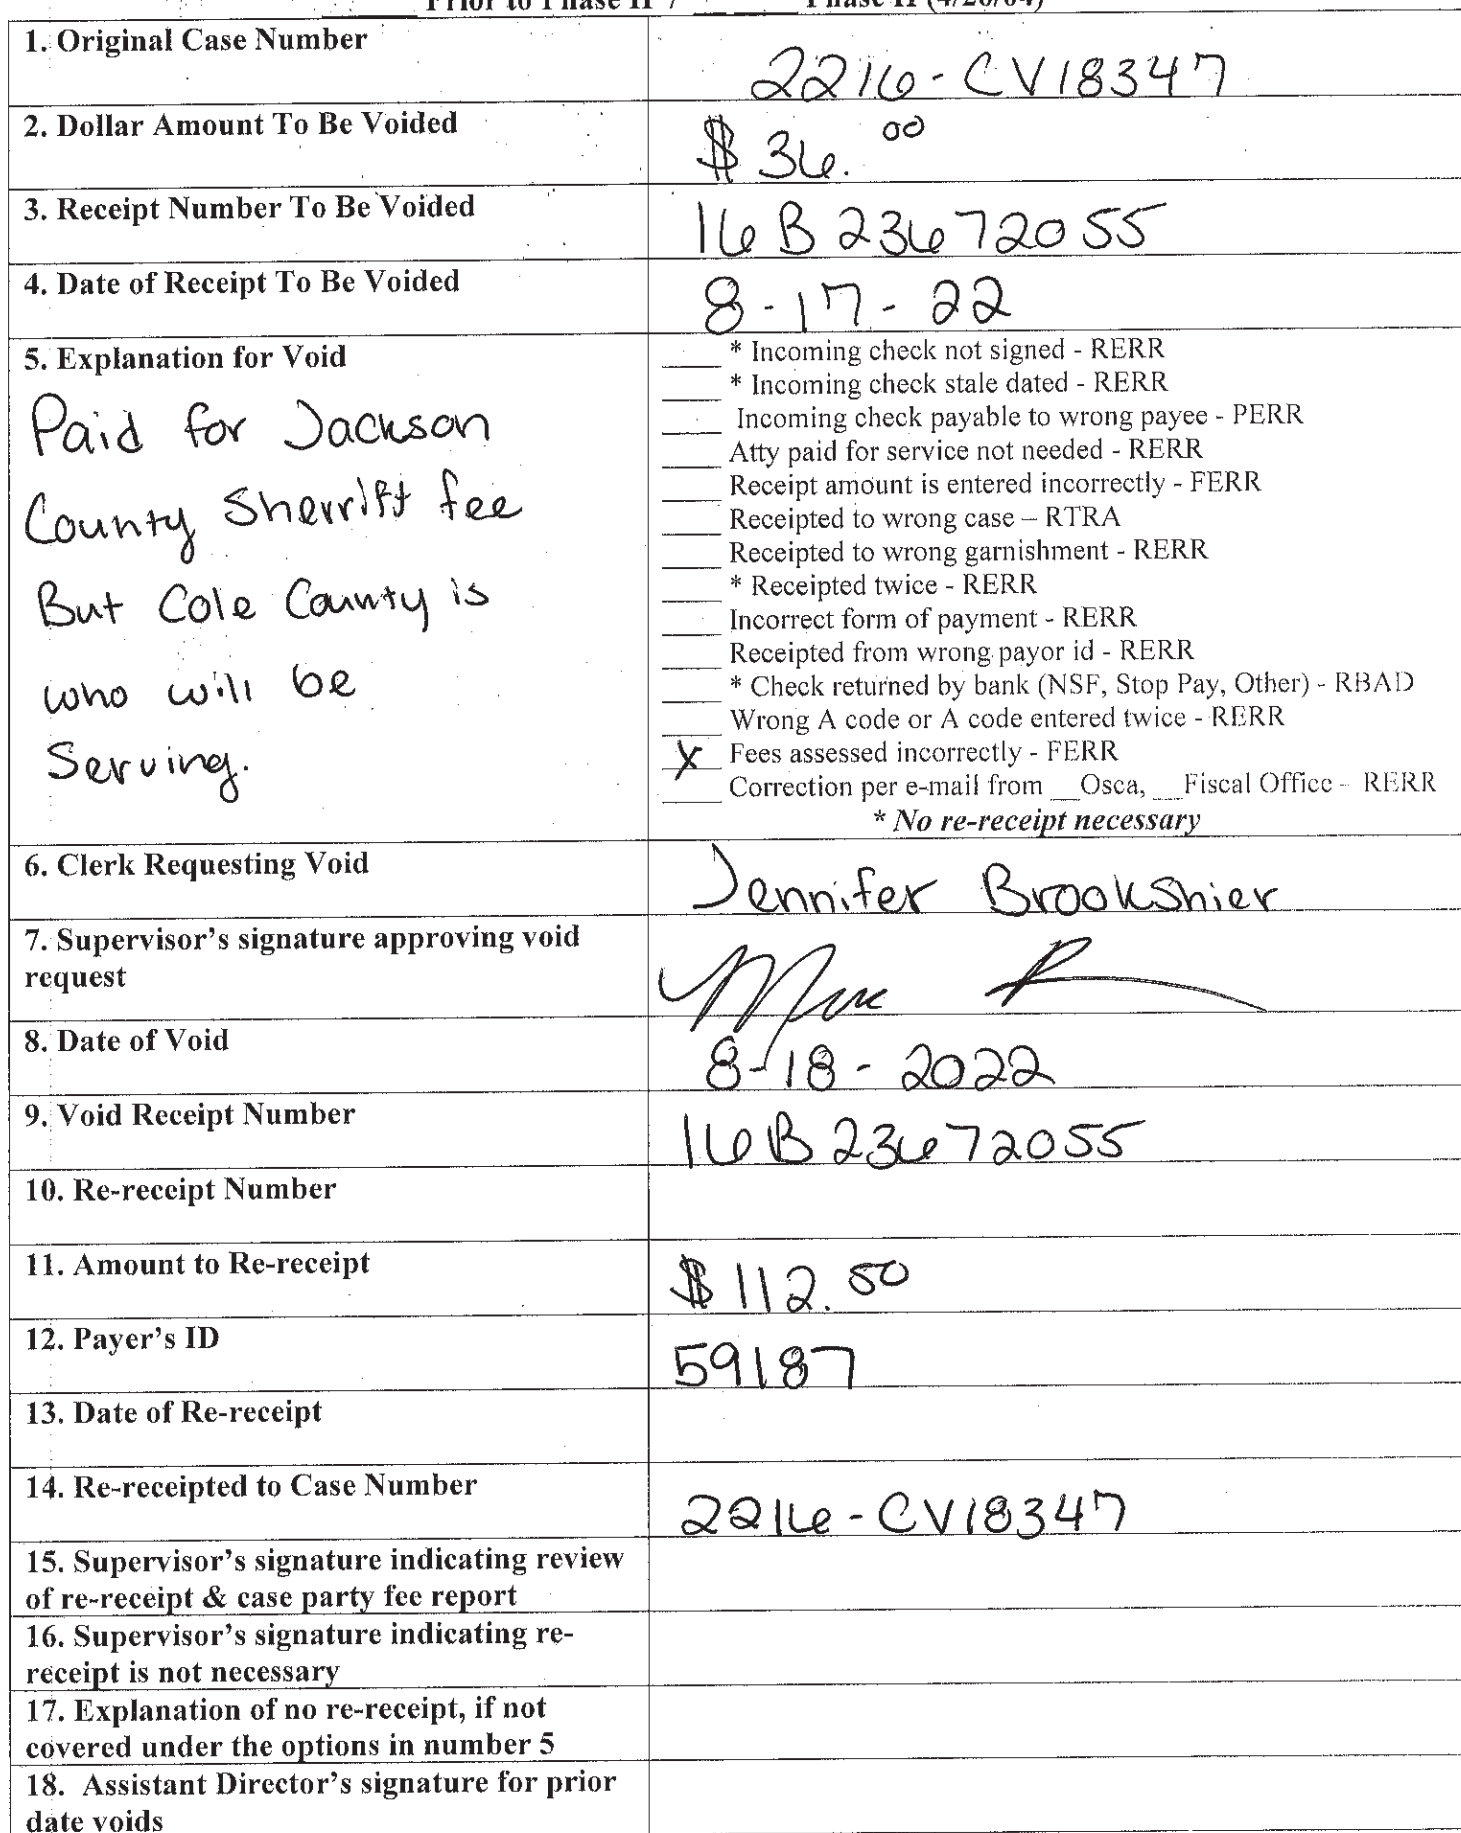 Prior to Phase II / Phase II (4/26/04)
1. Original Case Number
2216-CV18347
2. Dollar Amount To Be Voided
$36.00
3. Receipt Number To Be Voided
16B23672055
4. Date of Receipt To Be Voided
8-17-22
5. Explanation for Void
Paid for Jackson
County Sherriff fee
But Cole County is
who will be
Serving.
* Incoming check not signed - RERR
* Incoming check stale dated - RERR
Incoming check payable to wrong payee - PERR
Atty paid for service not needed - RERR
Receipt amount is entered incorrectly - FERR
Receipted to wrong case – RTRA
Receipted to wrong garnishment - RERR
* Receipted twice - RERR
Incorrect form of payment - RERR
Receipted from wrong payor id - RERR
* Check returned by bank (NSF, Stop Pay, Other) - RBAD
Wrong A code or A code entered twice - RERR
X Fees assessed incorrectly - FERR
Correction per e-mail from __Osca, __Fiscal Office - RERR
* No re-receipt necessary
6. Clerk Requesting Void
Jennifer Brookshier
7. Supervisor's signature approving void
request
8. Date of Void
8-18-2022
9. Void Receipt Number
16B23672055
10. Re-receipt Number
11. Amount to Re-receipt
$112.50
12. Payer's ID
59187
13. Date of Re-receipt
14. Re-receipted to Case Number
2216-CV18347
15. Supervisor's signature indicating review
of re-receipt & case party fee report
16. Supervisor's signature indicating re-
receipt is not necessary
17. Explanation of no re-receipt, if not
covered under the options in number 5
18. Assistant Director's signature for prior
date voids